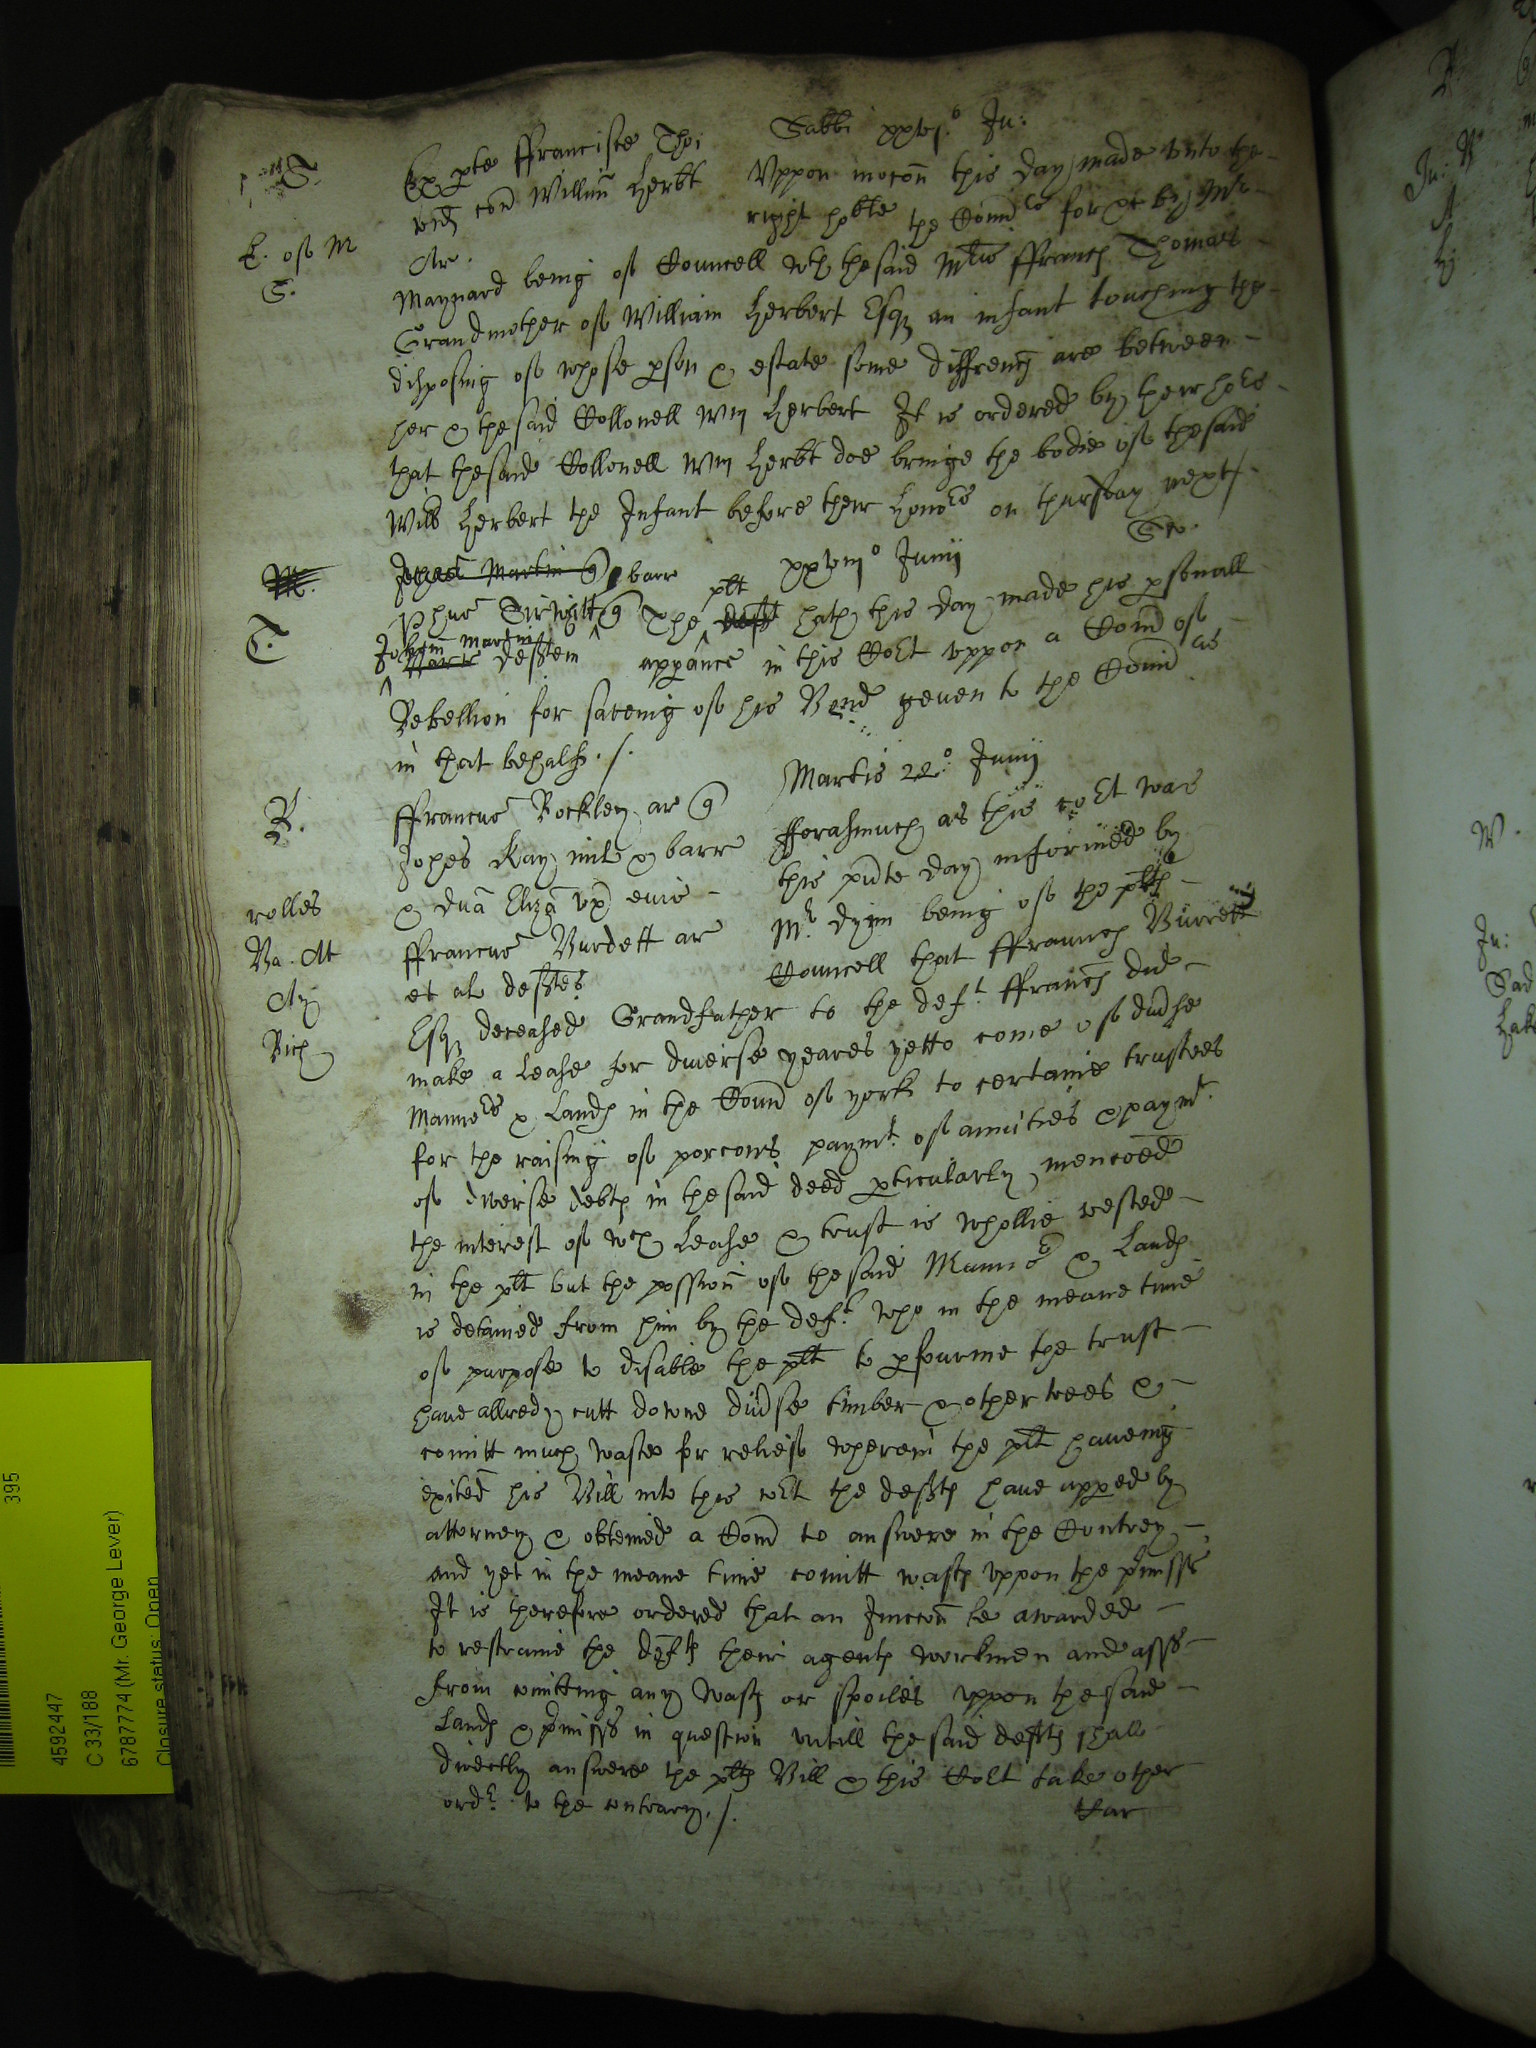 Sabbi xxvj.o Ju:
S.
Ex pte ffrancisce Tho:
vid con Willm Herbt
Ar.
E. of M
S.
Uppon mocon this day made unto the
right hoble the Comrs for &c by Mr
Maynard being of Councell wth the said Mris ffrancs Thomas
Grandmother of William Herbert Esqr an infant touching the
disposing of whose pson & estate some diffrencs are between
her & the said Collonell Wm Herbert It is ordered by their hors
that the said Collonell Wm Herbt doe bringe the bodie of the said
Will Herbert the Infant before their honors on thursday next
xxviijo Junij
M.
Johes Martin barr
T.
Sir Willm
The plt deft hath this day made his psonall
John Martin
deften
appance in this Cort uppon a Com of
Rebellion for saveing of his Bond geven to the Com as
in that behalf./.
Martis 22o Junij
R.
ffrancus Rockley ar
Johes Kay mil & barr
& dna Eliza ux eius
ffrancus Burdett ar
et al deftes
rolles
Ba. At
Ay
Rich
fforasmuch as this cort was
this pnte day informed by
Mr dyim being of the plts
Councell that ffrauncs Burdett
Esqr deceased Grandfather to the deft ffrancs did
make a Lease for diverse yeares yet to come of divse
Mannors & Lands in the Coun of york to certaine trustees
for the raising of porcons paymt of anuities & paymt
of diverse debts in the said deed pticularly mencoed
the interest of wch Lease & trust is whollie vested
in the plt but the possion of the said Mannors & Lands
is detained from him by the deft who in the meane time
of purpose to disable the plt to pfourme the trust
have allredy cutt downe divse timber & other trees &
comitt much waste for relief wherein the plt haveing
exited his Bill into this cort the defts have apped by
attorney & obteined a Com to answere in the Contrey
and yet in the meane time comitt wasts uppon the pmisss
It is therefore ordered that an Iniccon be awarded
to restraine the defts their agents workmen and asss
from comitting any wasts or spoiles uppon the said
Lands & pmisss in question untill the said defts shall
directly answere the plts Bill & this Cort take other
ordr to the contrary./.
Car
395
4592447
C 33/188
6787774 (Mr. George Lever)
Closure status: Open